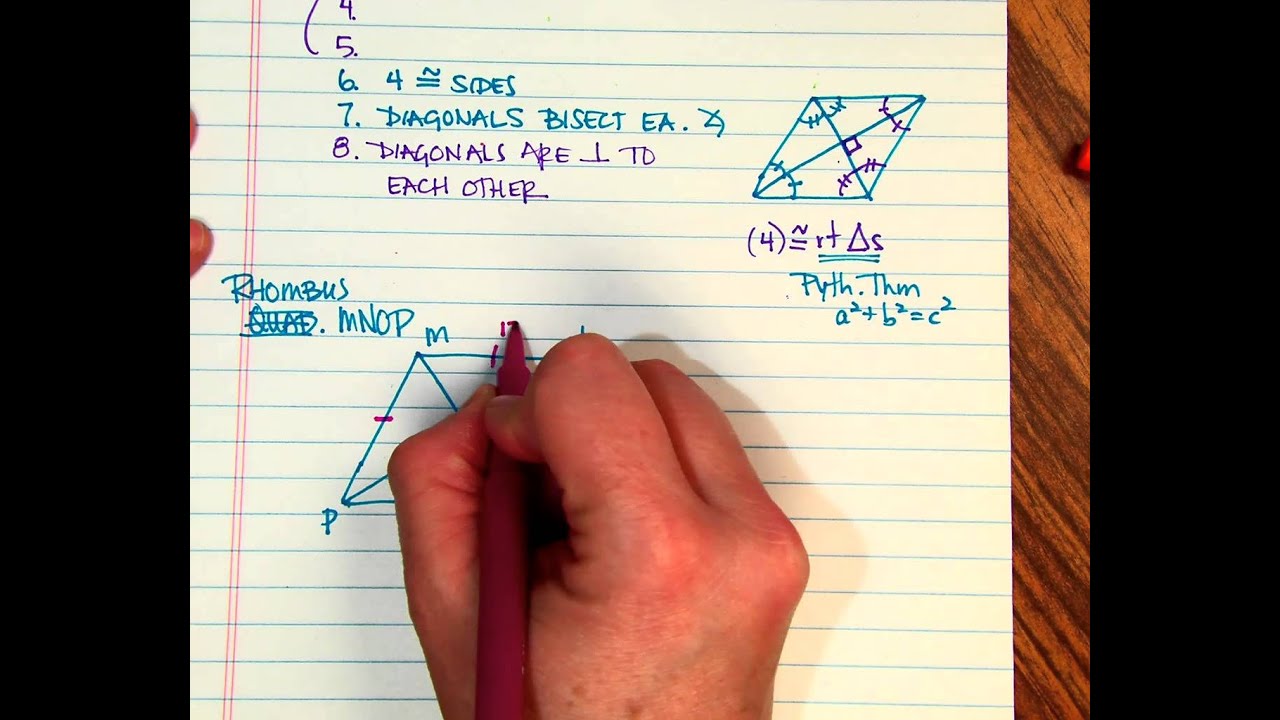 4.
5.
6. 4 ≅ SIDES
7. DIAGONALS BISECT EA. ∡
8. DIAGONALS ARE ⊥ TO
EACH OTHER
(4) ≅ rt △s
Pyth. Thm
a²+b²=c²
RHOMBUS
MNOP
M
P